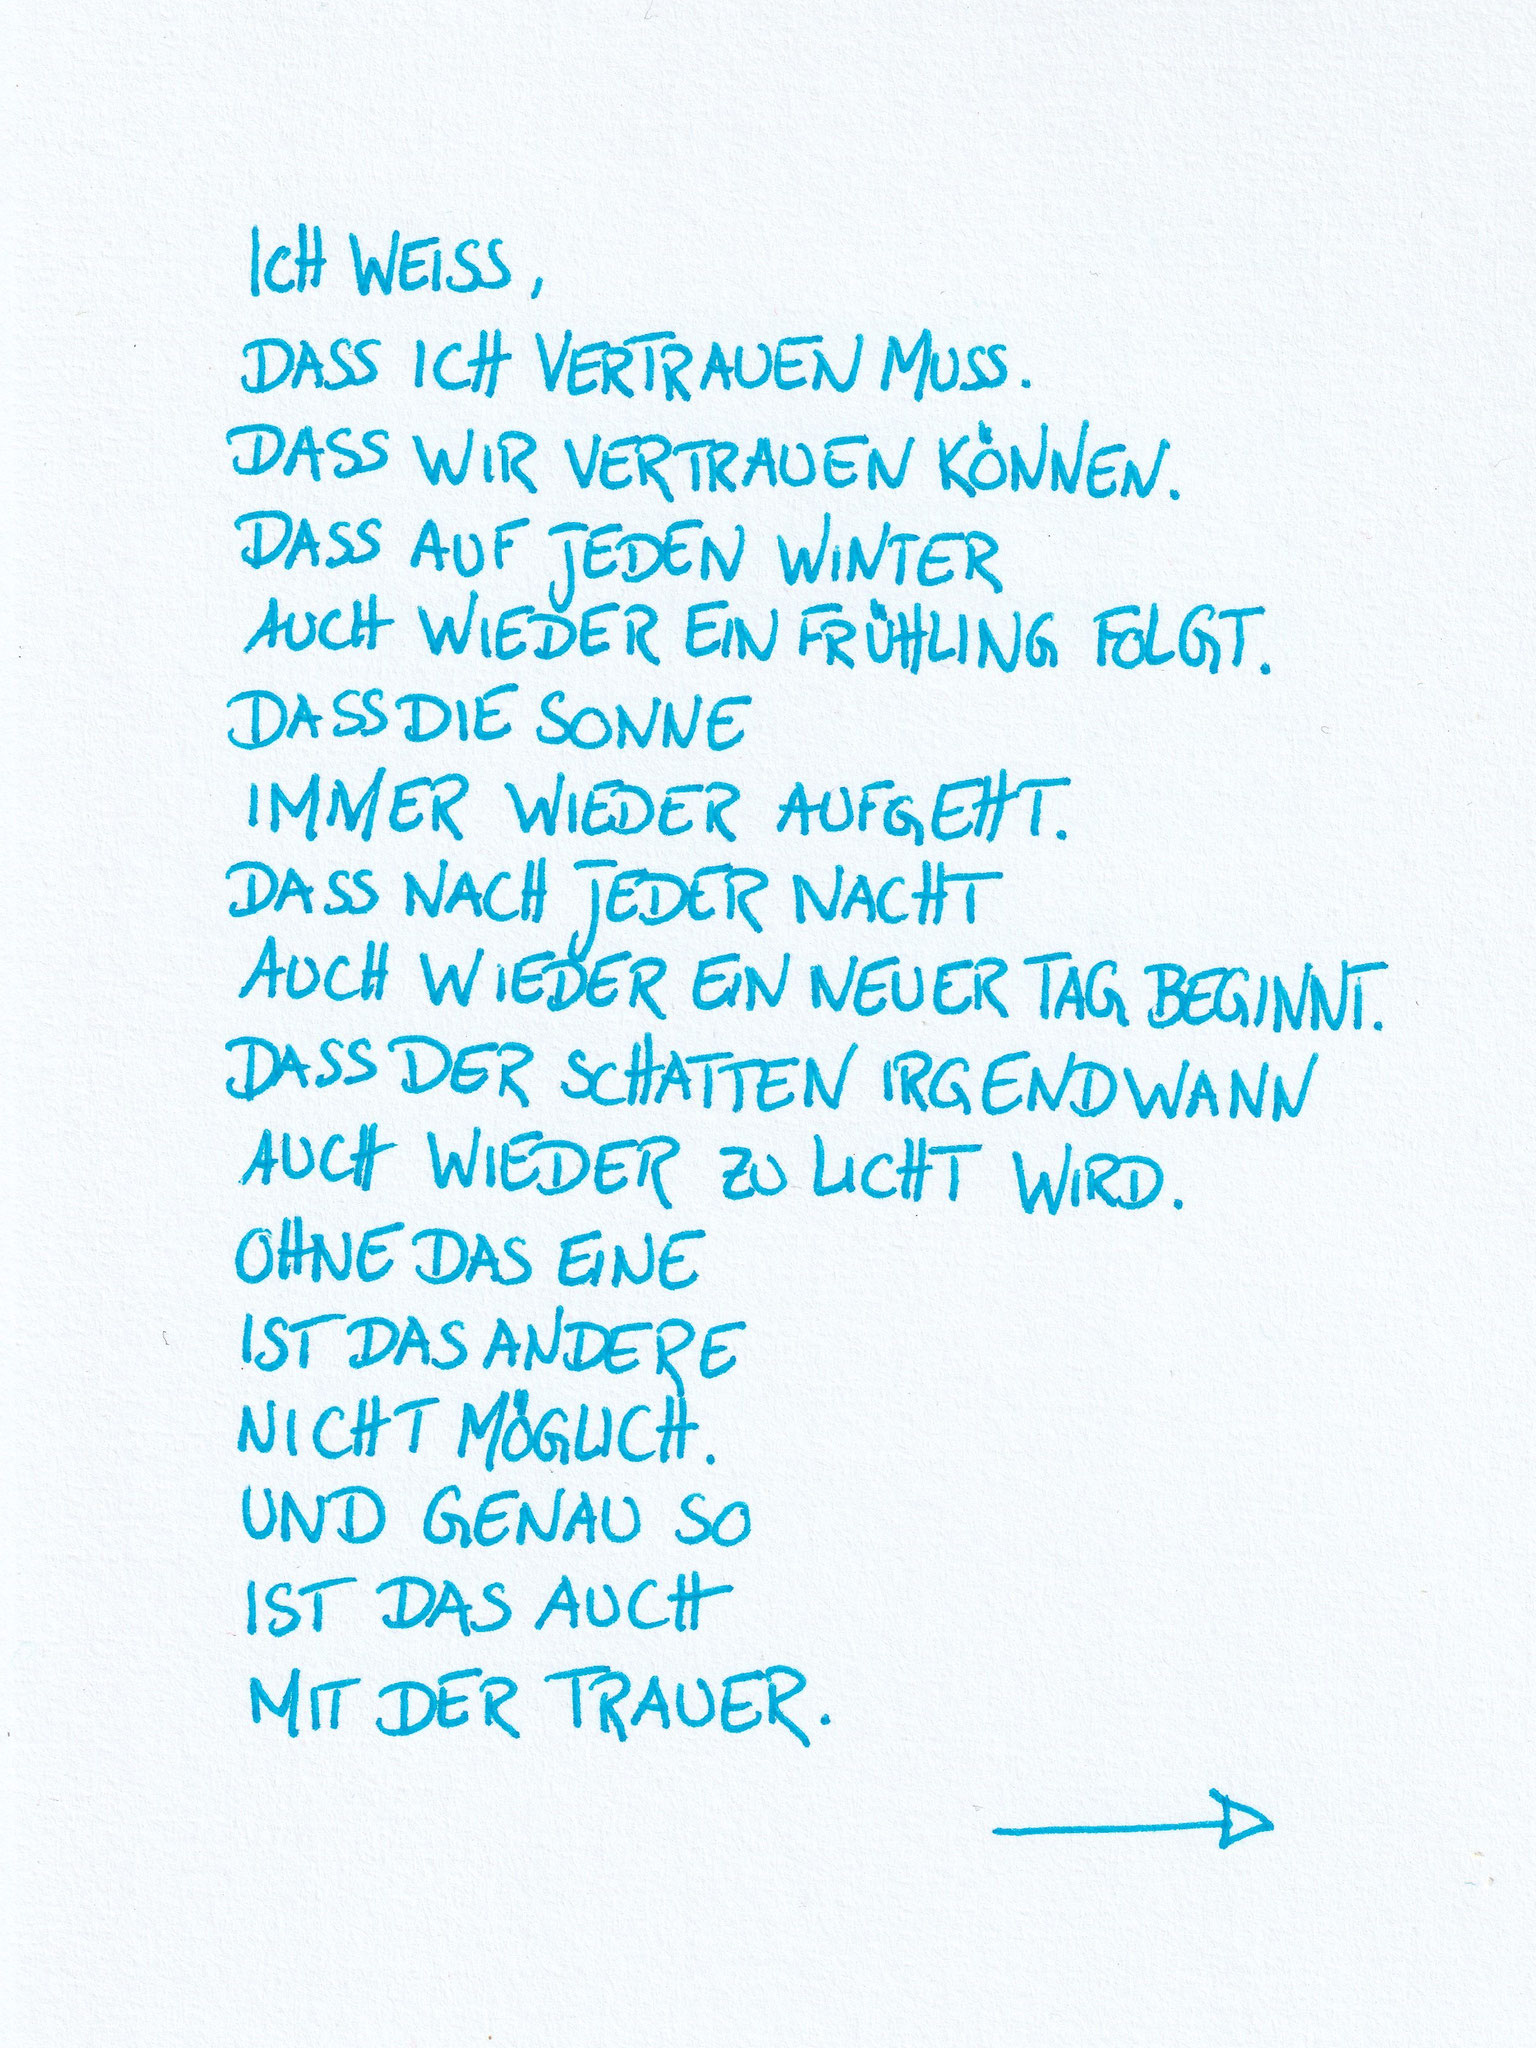 ICH WEISS,
DASS ICH VERTRAUEN MUSS.
DASS WIR VERTRAUEN KÖNNEN.
DASS AUF JEDEN WINTER
AUCH WIEDER EIN FRÜHLING FOLGT.
DASS DIE SONNE
IMMER WIEDER AUFGEHT.
DASS NACH JEDER NACHT
AUCH WIEDER EIN NEUER TAG BEGINNT.
DASS DER SCHATTEN IRGENDWANN
AUCH WIEDER ZU LICHT WIRD.
OHNE DAS EINE
IST DAS ANDERE
NICHT MÖGLICH.
UND GENAU SO
IST DAS AUCH
MIT DER TRAUER.